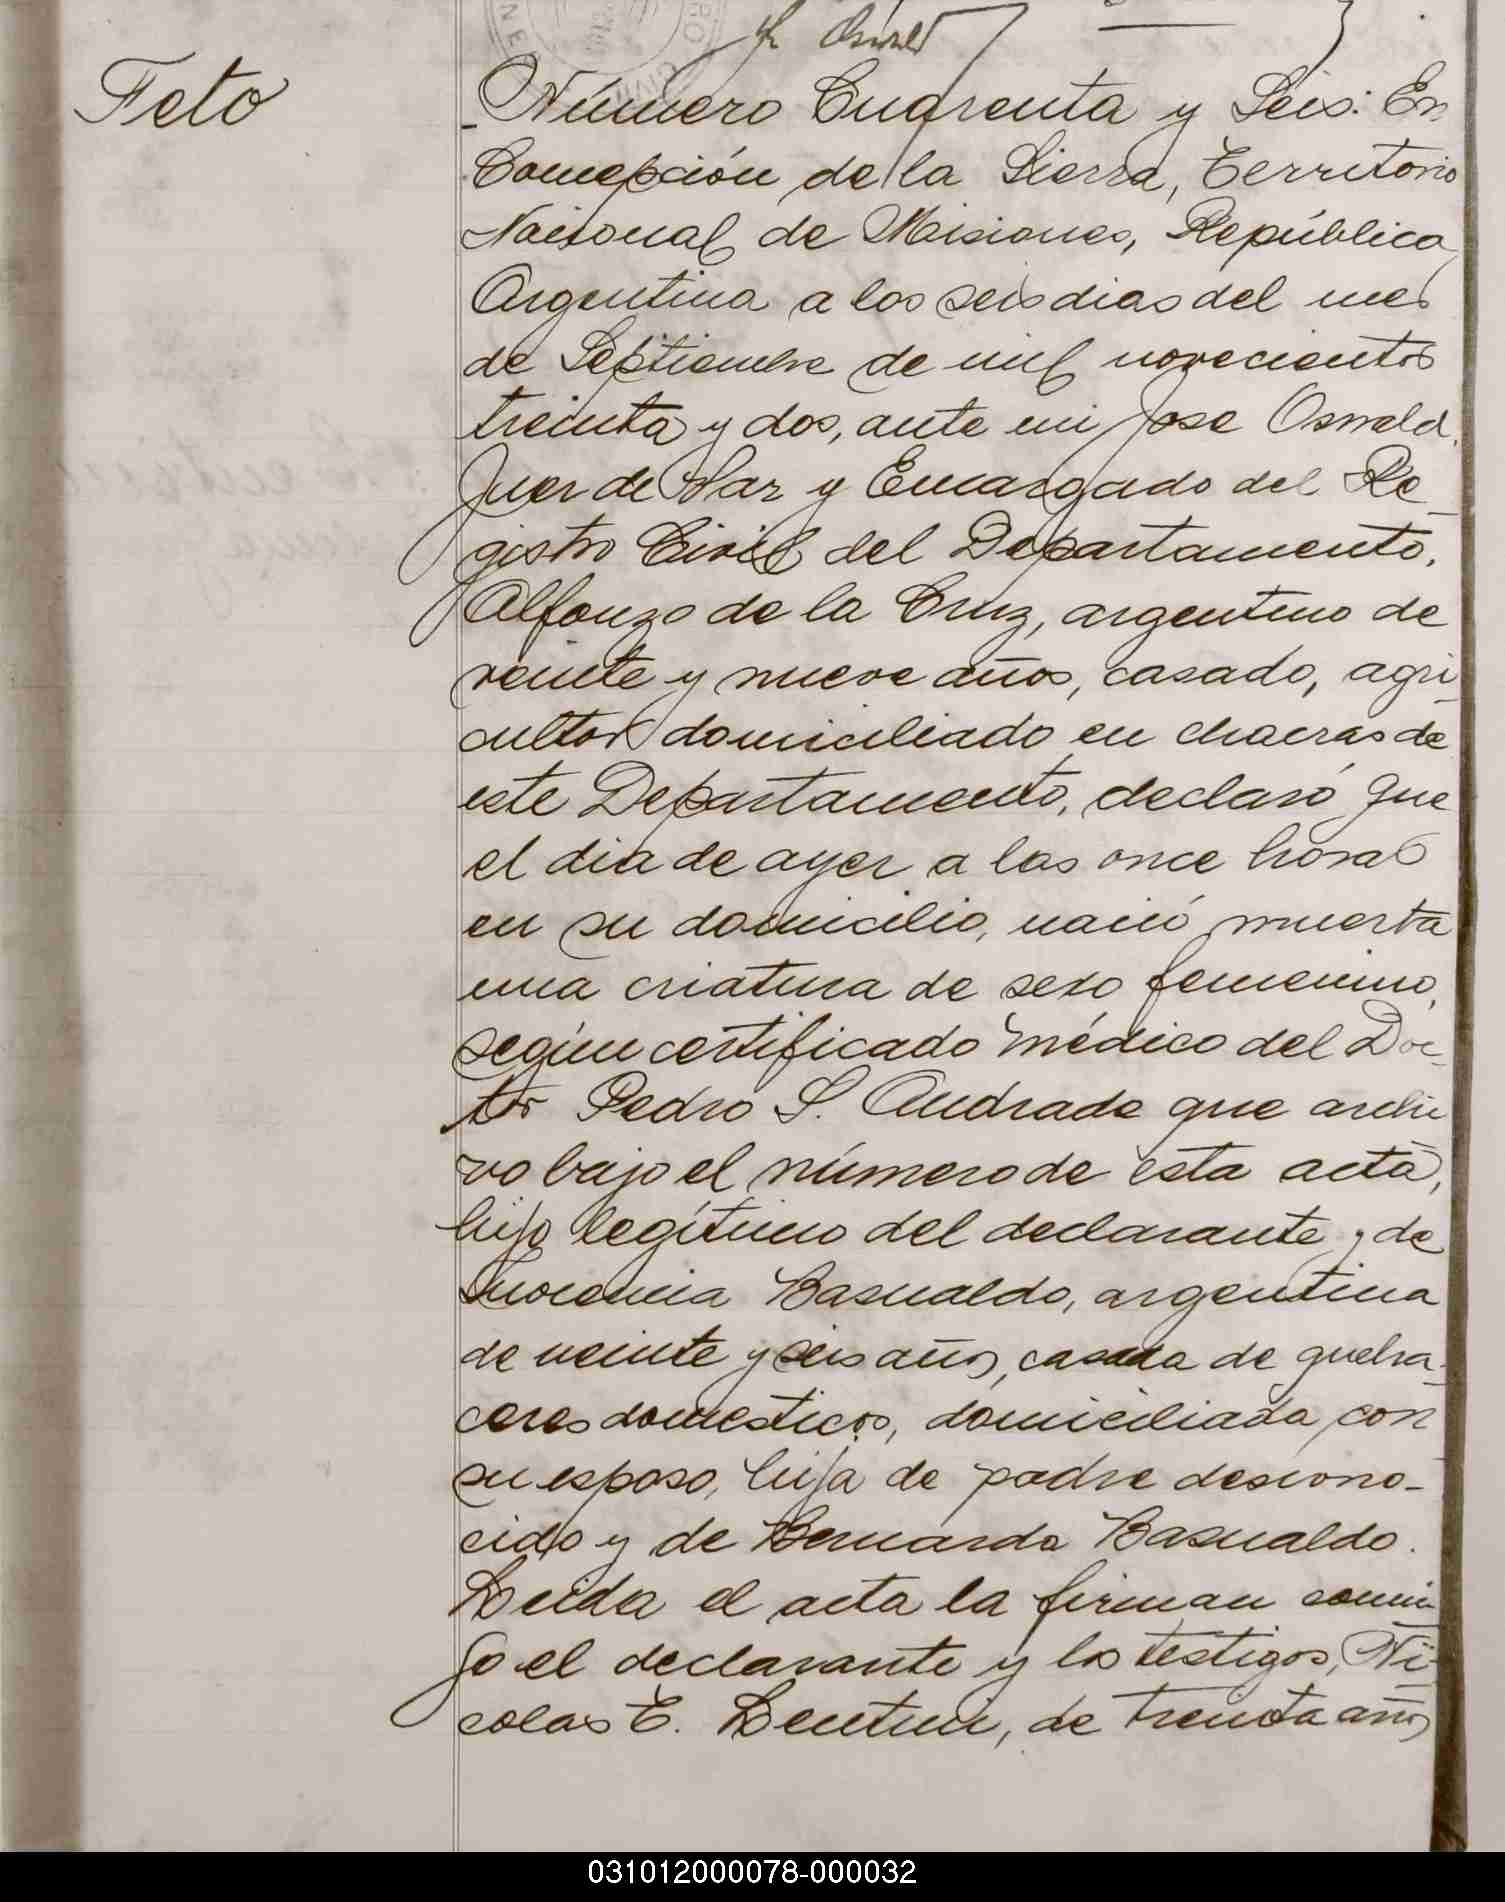 Oswald
Feto
Número Cuarenta y Seis: En
Concepción de la Sierra, Territorio
Nacional de Misiones, República
Argentina a los seis dias del mes
de Septiembre de mil novecientos
treinta y dos, ante mi Jose Oswald,
Juez de Paz y Encargado del Re-
gistro Civil del Departamento,
Alfonzo de la Cruz, argentino de
veinte y nueve años, casado, agri-
cultor domiciliado en chacras de
este Departamento, declaró que
el dia de ayer a las once horas
en su domicilio, nació muerta
una criatura de sexo femenino,
según certificado médico del Doc-
tor Pedro S. Andrade que archi
vo bajo el número de esta acta,
hijo legítimo del declarante y de
Inocencia Basualdo, argentina
de veinte y seis años, casada de queha-
ceres domesticos, domiciliada con
su esposo, hija de padre descono-
cido y de Bernarda Basualdo.
Leida el acta la firman conmi-
go el declarante y los testigos, Ni-
colas E. Lentini, de treinta años
031012000078-000032